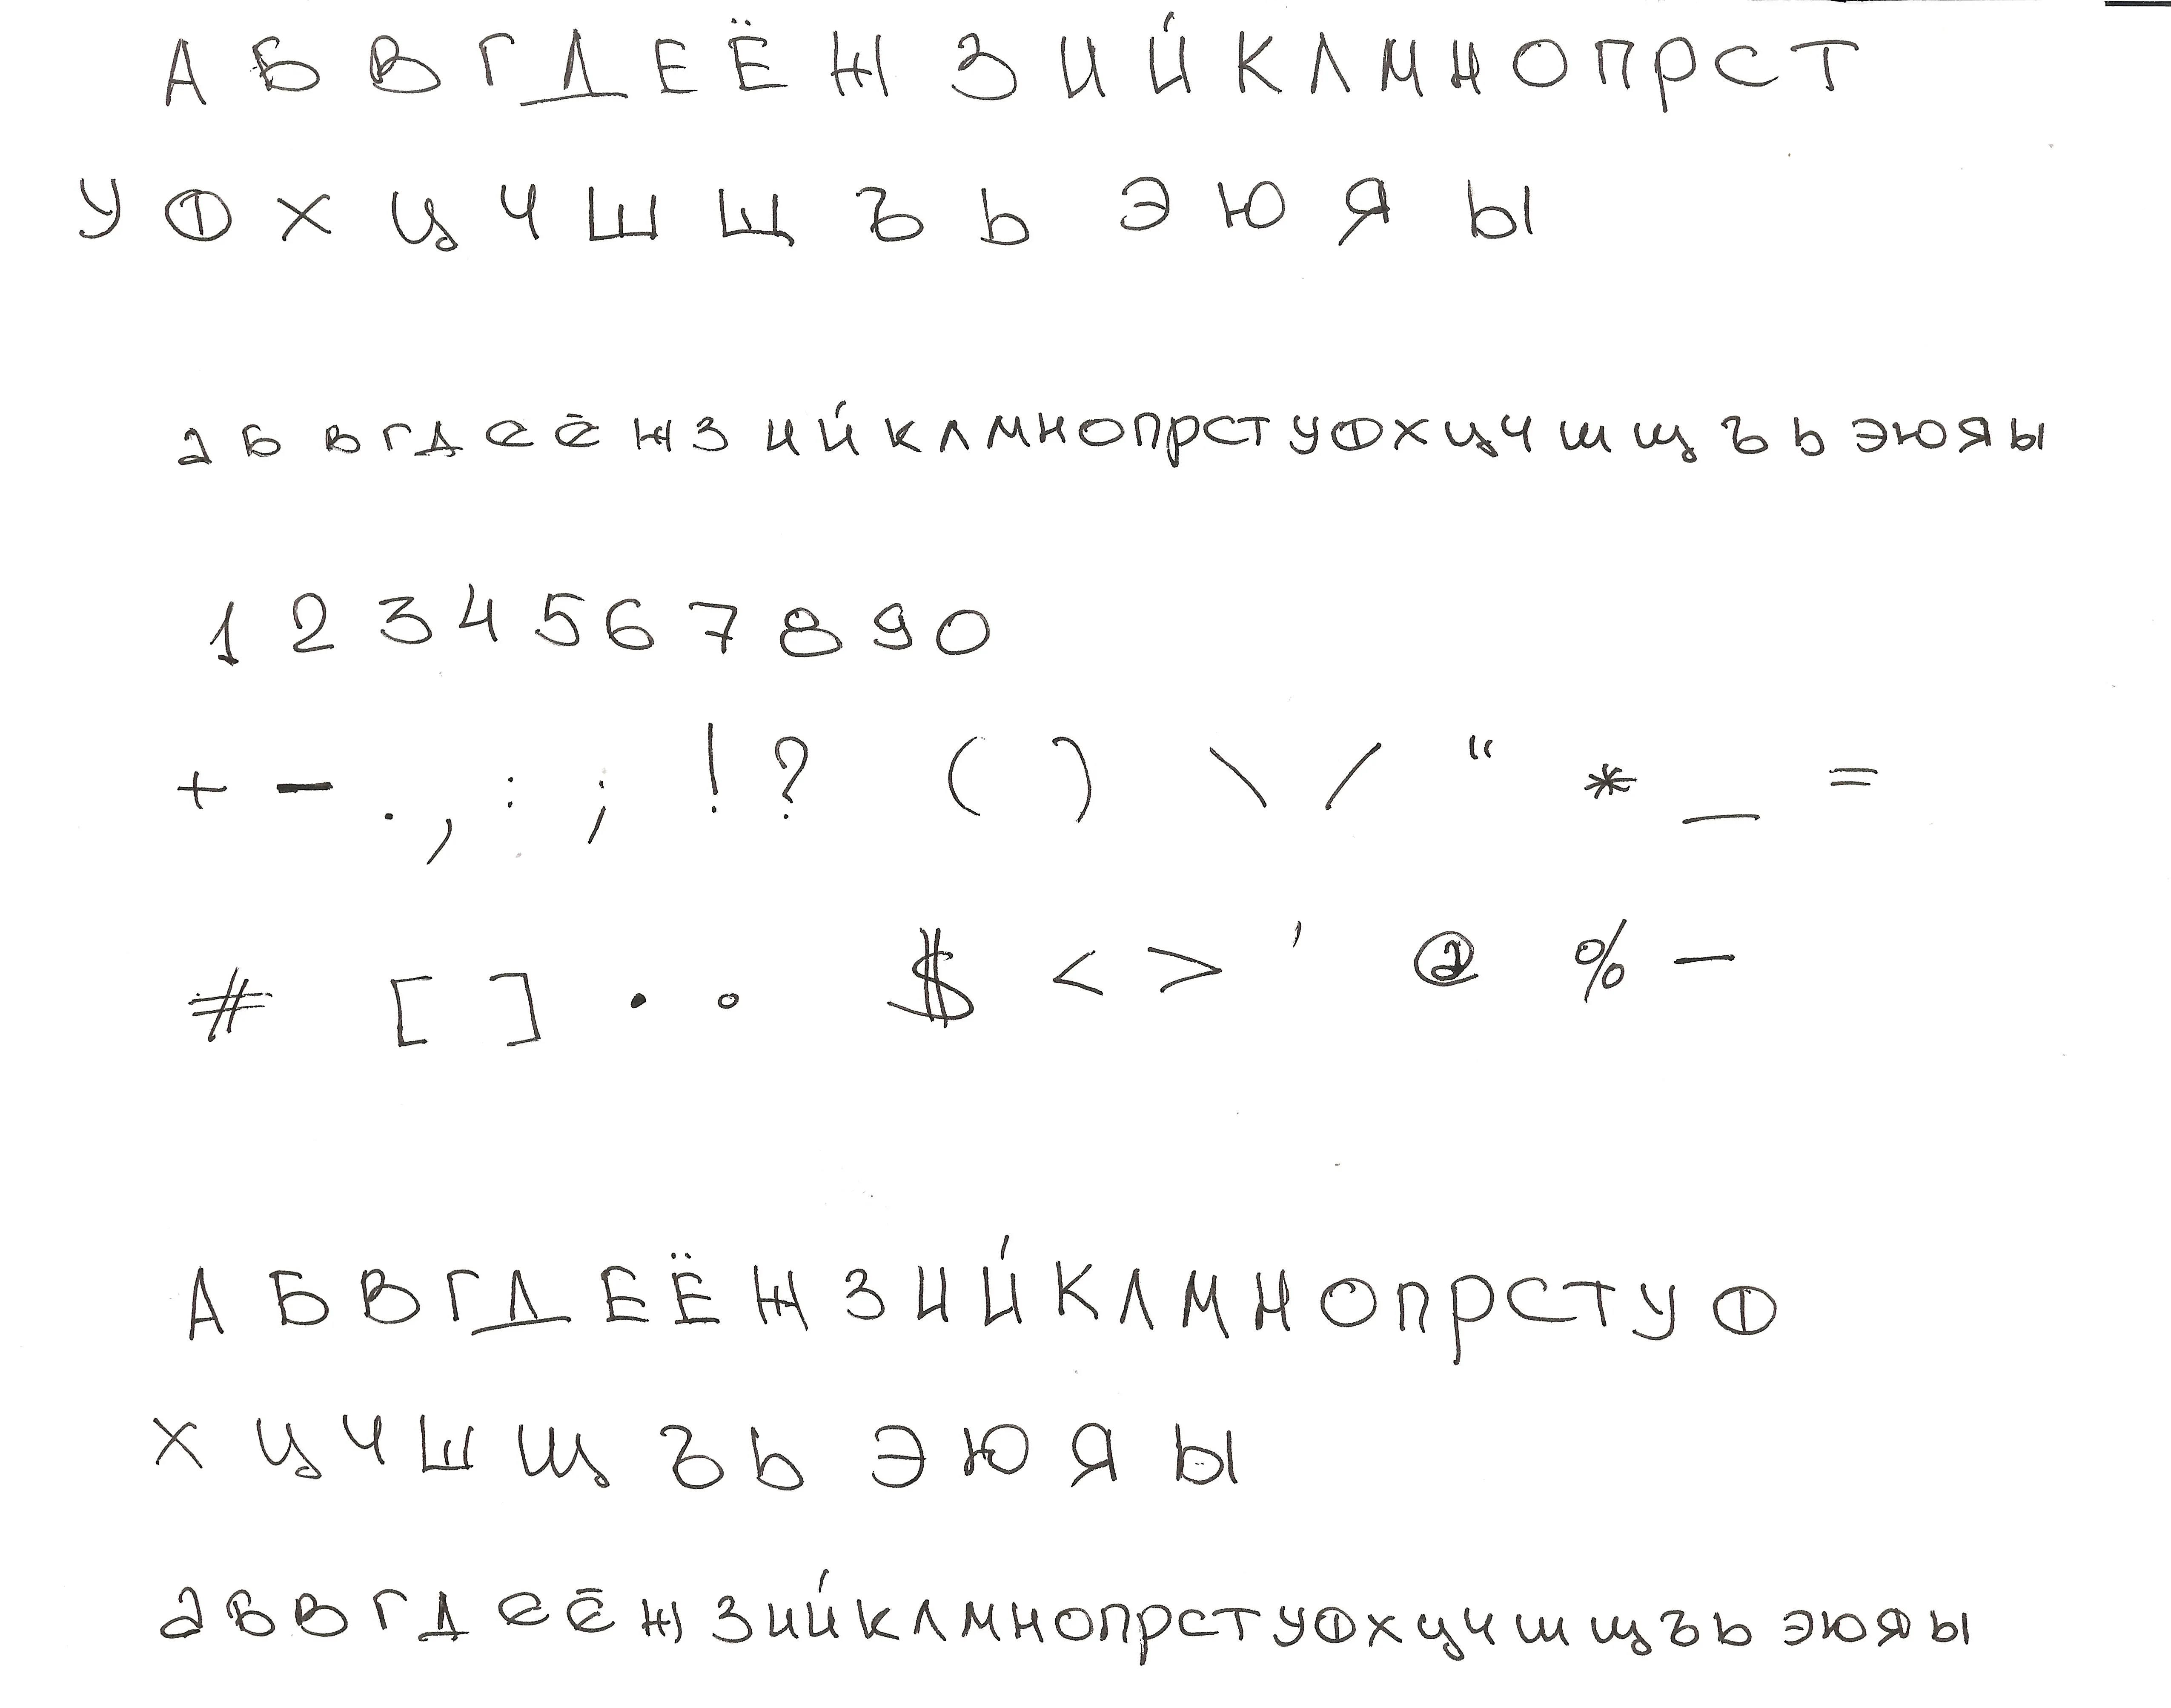 А Б В Г Д Е Ё Ж З И Й К Л М Н О П Р С Т
У Ф Х Ц Ч Ш Щ Ъ Ь Э Ю Я Ы
а б в г д е ё ж з и й к л м н о п р с т у ф х ц ч ш щ ъ ь э ю я ы
1 2 3 4 5 6 7 8 9 0
+ – . , : ; ! ? ( ) \ / “ * _ =
# [ ] • ° $ < > ' @ % –
А Б В Г Д Е Ё Ж З И Й К Л М Н О П Р С Т У Ф
Х Ц Ч Ш Щ Ъ Ь Э Ю Я Ы
а б в г д е ё ж з и й к л м н о п р с т у ф х ц ч ш щ ъ ь э ю я ы